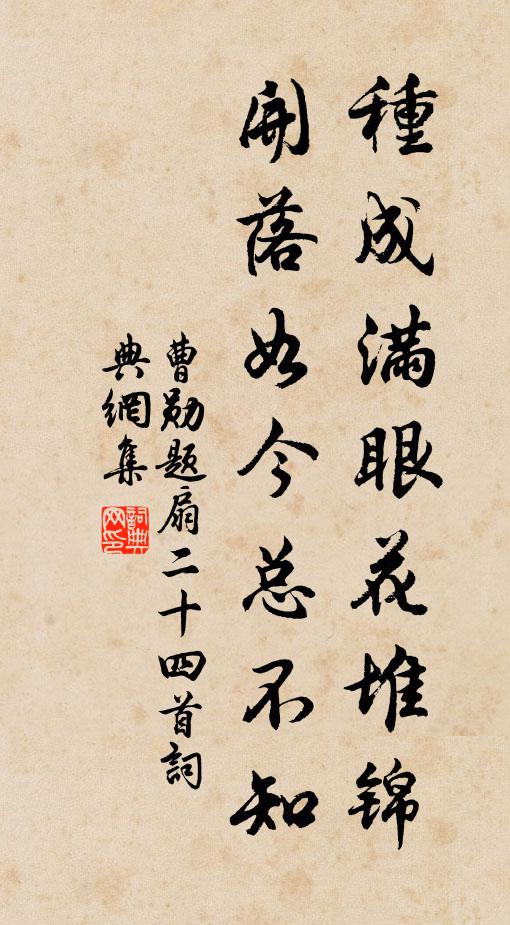 種成滿眼花堆锦
開落如今总不知
曹勛題扇二十四首詞
典網集
詞典
网印